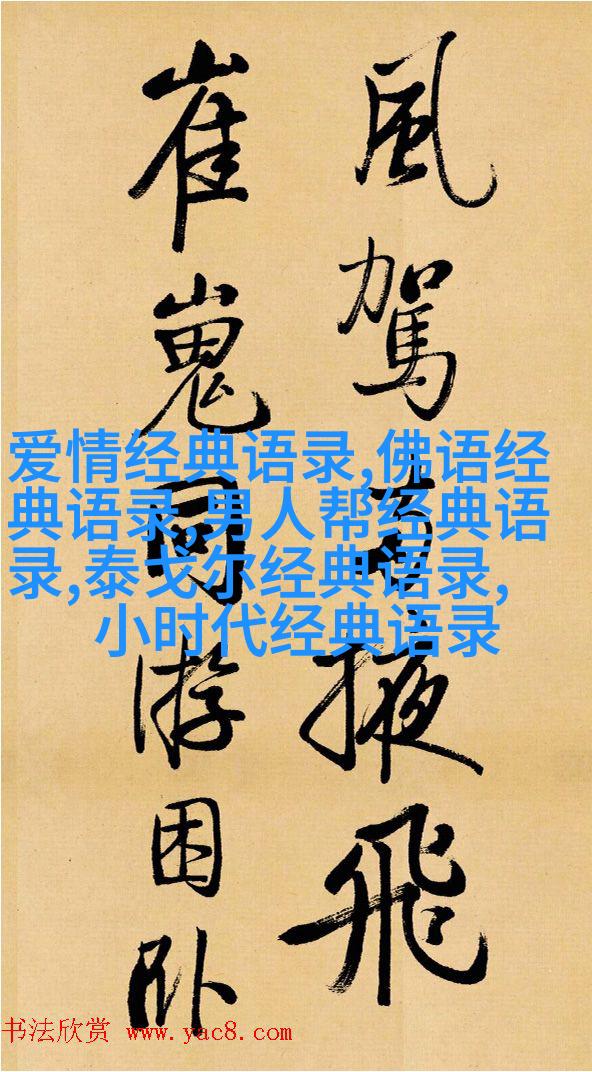 風駕掖飛
崔嵬同游困卧
爱情经典语录,佛语经
典语录,男人帮经典语
录,泰戈尔经典语录,
小时代经典语录
书法欣赏 www.yac8.com